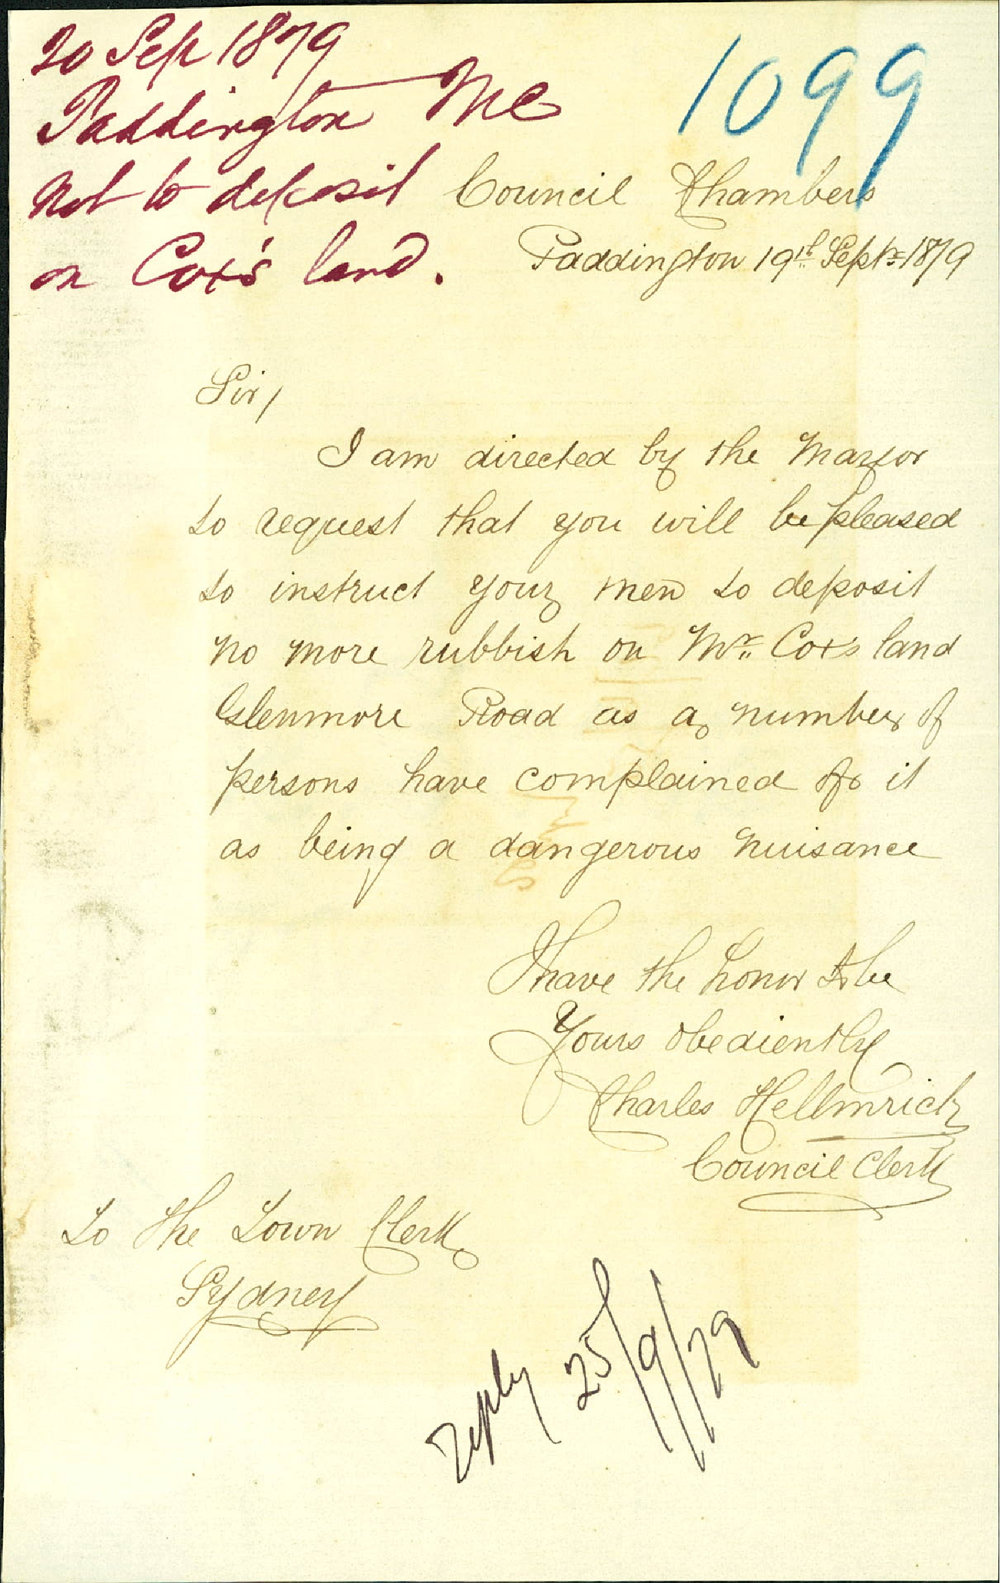 20 Sep 1879
Paddington MC
Not to deposit
on Cox's land.
1099
Council Chambers
Paddington 19th Sept. 1879
Sir,
I am directed by the Mayor
to request that you will be pleased
to instruct your men to deposit
no more rubbish on Mr. Cox's land
Glenmore Road as a number of
persons have complained of it
as being a dangerous nuisance
I have the honor to be
Yours obediently
Charles Hellmrich
Council Clerk
To The Town Clerk
Sydney
Reply 25/9/79